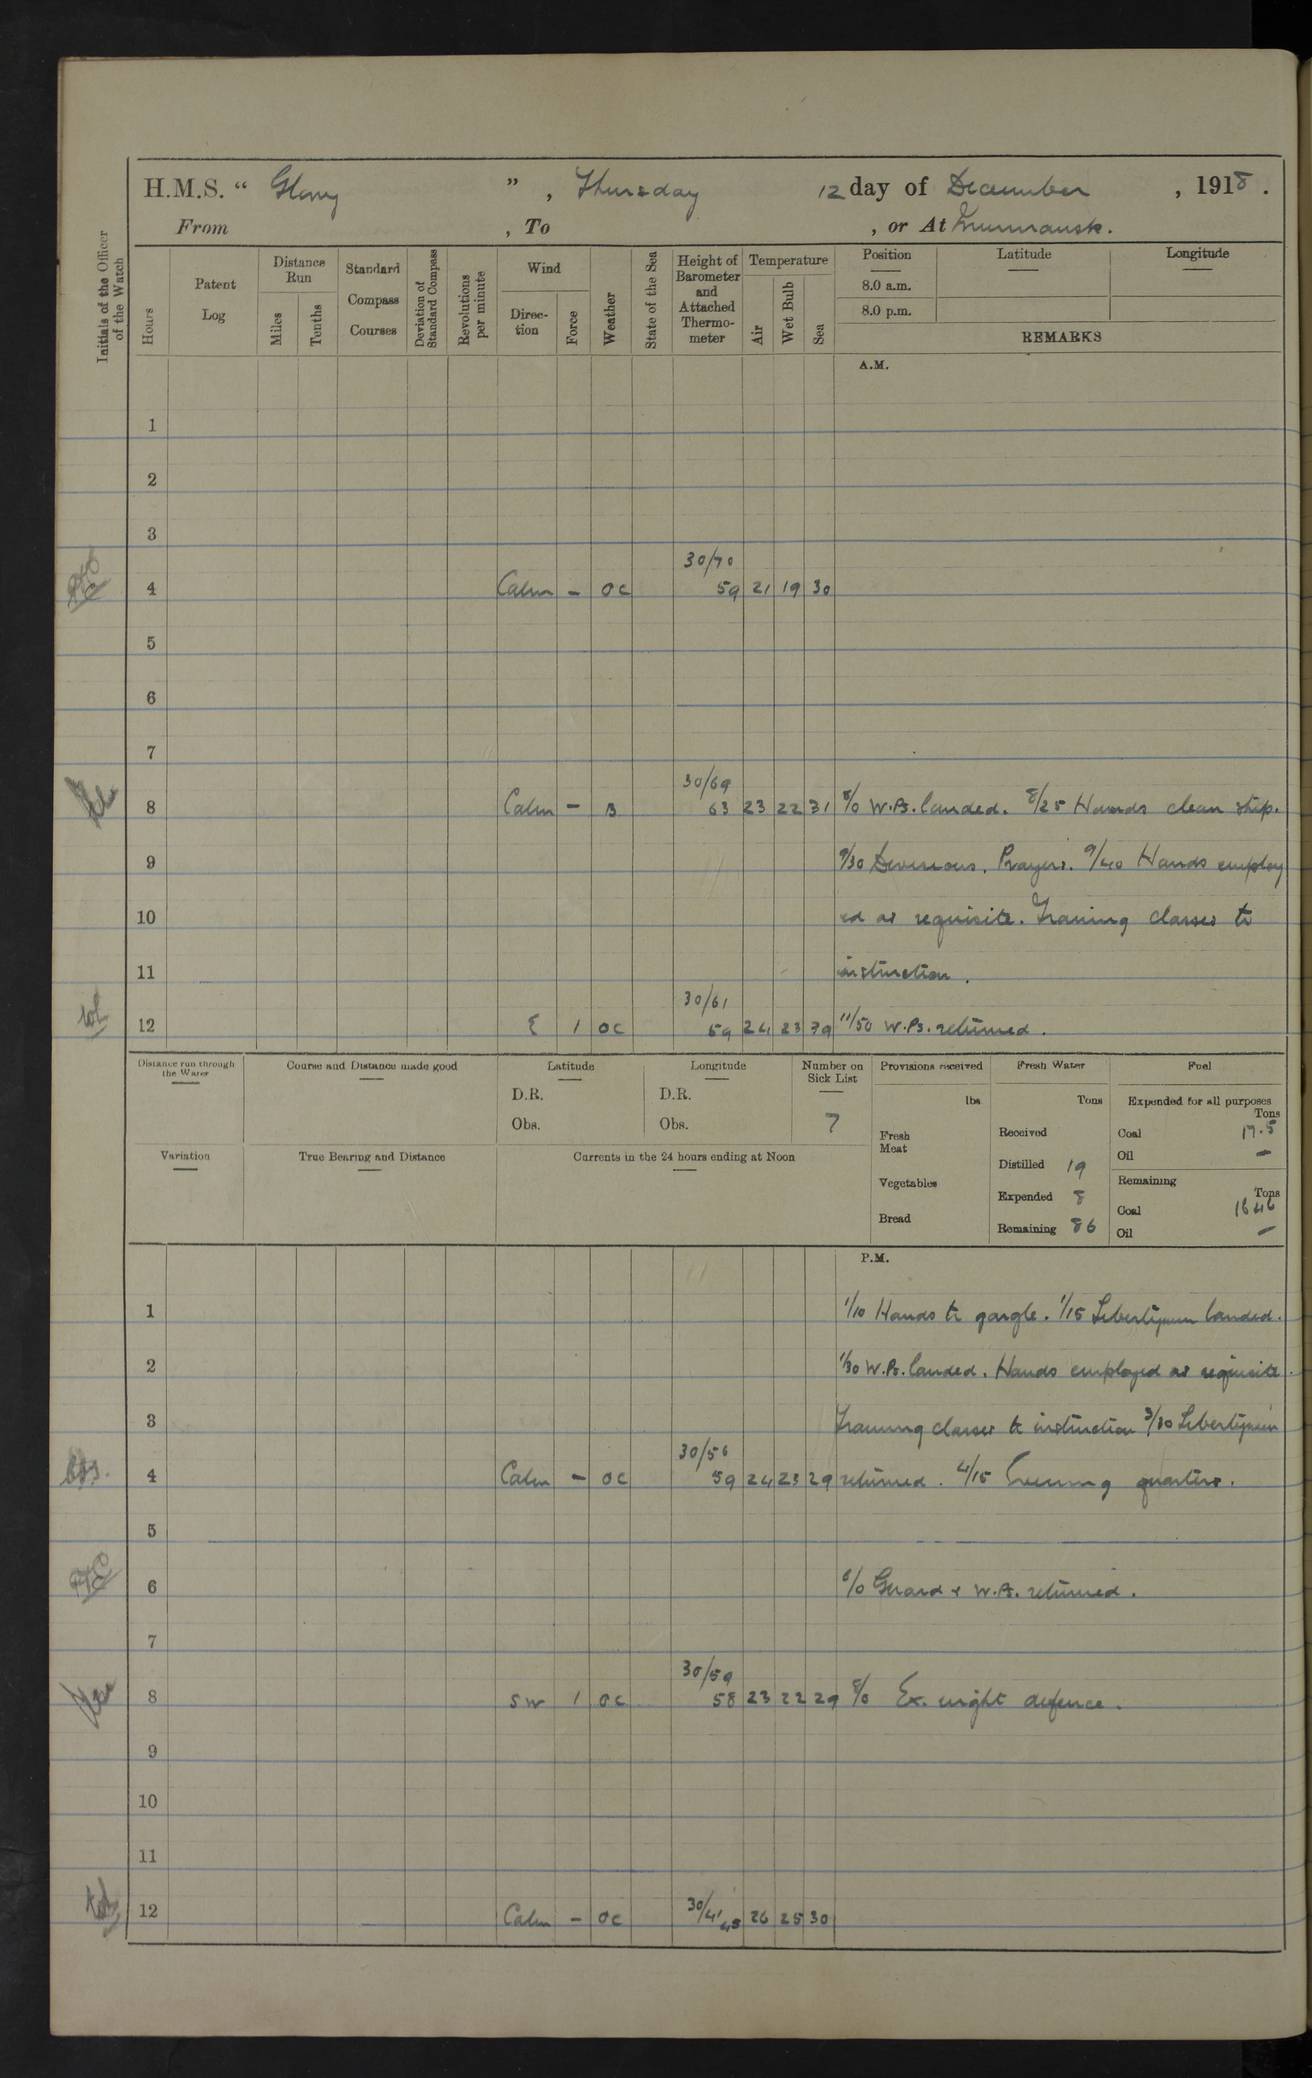 H.M.S. “ Glory ” , Thursday 12 day of December , 1918 .
From , To , or At Murmansk.
Initials of the Officer of the Watch
Hours
Patent Log
Distance Run
Miles
Tenths
Standard Compass Courses
Deviation of Standard Compass
Revolutions per minute
Wind
Direc-tion
Force
Weather
State of the Sea
Height of Barometer and Attached Thermo-meter
Temperature
Air
Wet Bulb
Sea
Position
Latitude
Longitude
8.0 a.m.
8.0 p.m.
REMARKS
A.M.
1
2
3
30/70
4 Calm – oc 59 21 19 30
5
6
7
30/69
8 Calm – B 63 23 22 31 8/0 W.Ps. landed. 8/25 Hands clean ship.
9 9/30 Divisions. Prayers. 9/40 Hands employ
10 ed as requisite. Training classes to
11 instruction.
30/61
12 E 1 oc 59 24 23 29 11/50 W.Ps. returned.
Distance run through the Water
Course and Distance made good
Latitude
D.R.
Obs.
Longitude
D.R.
Obs.
Number on Sick List
7
Provisions received
lbs
Fresh Meat
Vegetables
Bread
Fresh Water
Tons
Received
Distilled 19
Expended 8
Remaining 86
Fuel
Expended for all purposes
Tons
Coal 17.5
Oil –
Remaining
Tons
Coal 1646
Oil –
Variation
True Bearing and Distance
Currents in the 24 hours ending at Noon
P.M.
1 1/10 Hands to gargle. 1/15 Libertymen landed.
2 1/30 W.Ps. landed. Hands employed as requisite.
3 Training classes to instruction 3/30 Libertymen
30/56
4 Calm – oc 59 24 23 29 returned. 4/15 Evening quarters.
5
6 6/0 Guard & W.Ps. returned.
7
30/59
8 SW 1 oc 58 23 22 29 8/0 Ex. night defence.
9
10
11
12 Calm – oc 30/41 45 26 25 30